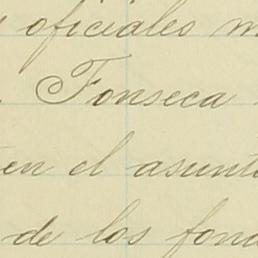 y oficiales m
Fonseca
en el asunto
de los fond